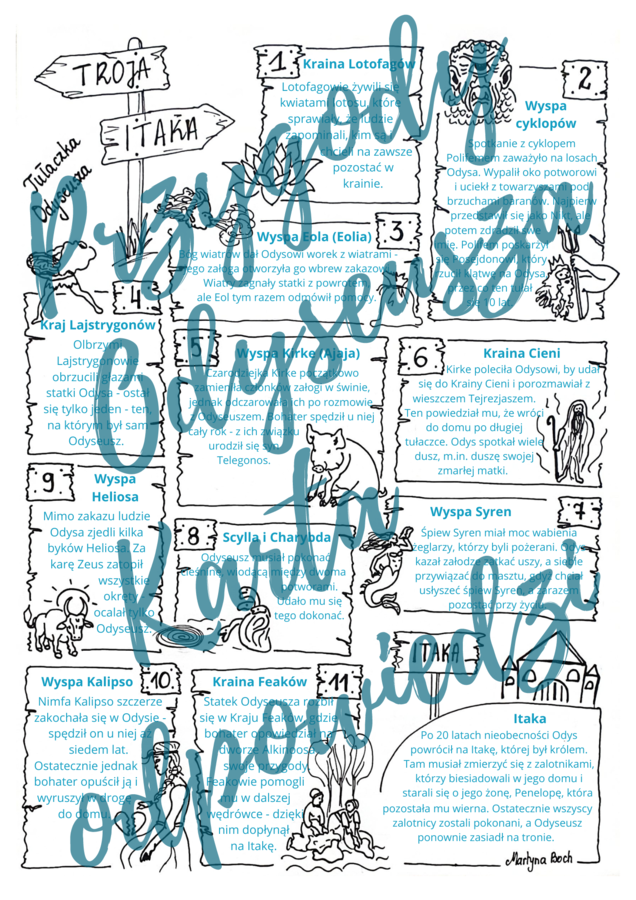 TROJA
ITAKA
Tułaczka
Odyseusza
1
Kraina Lotofagów
Lotofagowie żywili się
kwiatami lotosu, które
sprawiały, że ludzie
zapominali, kim są i
chcieli na zawsze
pozostać w
krainie.
2
Wyspa
cyklopów
Spotkanie z cyklopem
Polifemem zaważyło na losach
Odysa. Wypalił oko potworowi
i uciekł z towarzyszami pod
brzuchami baranów. Najpierw
przedstawił się jako Nikt, ale
potem zdradził swe
imię. Polifem poskarżył
się Posejdonowi, który
rzucił klątwę na Odysa,
przez co ten tułał
się 10 lat.
3
Wyspa Eola (Eolia)
Bóg wiatrów dał Odysowi worek z wiatrami -
jego załoga otworzyła go wbrew zakazowi.
Wiatry zagnały statki z powrotem,
ale Eol tym razem odmówił pomocy.
4
Kraj Lajstrygonów
Olbrzymi
Lajstrygonowie
obrzucili głazami
statki Odysa - ostał
się tylko jeden - ten,
na którym był sam
Odyseusz.
5
Wyspa Kirke (Ajaja)
Czarodziejka Kirke początkowo
zamieniła członków załogi w świnie,
jednak odczarowała ich po rozmowie
z Odyseuszem. Bohater spędził u niej
cały rok - z ich związku
urodził się syn
Telegonos.
6
Kraina Cieni
Kirke poleciła Odysowi, by udał
się do Krainy Cieni i porozmawiał z
wieszczem Tejrezjaszem.
Ten powiedział mu, że wróci
do domu po długiej
tułaczce. Odys spotkał wiele
dusz, m.in. duszę swojej
zmarłej matki.
7
Wyspa Syren
Śpiew Syren miał moc wabienia
żeglarzy, którzy byli pożerani. Odys
kazał załodze zatkać uszy, a siebie
przywiązać do masztu, gdyż chciał
usłyszeć śpiew Syren, a zarazem
pozostać przy życiu.
8
Scylla i Charybda
Odyseusz musiał pokonać
cieśninę, wiodącą między dwoma
potworami.
Udało mu się
tego dokonać.
9
Wyspa
Heliosa
Mimo zakazu ludzie
Odysa zjedli kilka
byków Heliosa. Za
karę Zeus zatopił
wszystkie
okręty -
ocalał tylko
Odyseusz.
10
Wyspa Kalipso
Nimfa Kalipso szczerze
zakochała się w Odysie -
spędził on u niej aż
siedem lat.
Ostatecznie jednak
bohater opuścił ją i
wyruszył w drogę
do domu.
11
Kraina Feaków
Statek Odyseusza rozbił
się w Kraju Feaków, gdzie
bohater opowiedział na
dworze Alkinoosa
swoje przygody.
Feakowie pomogli
mu w dalszej
wędrówce - dzięki
nim dopłynął
na Itakę.
ITAKA
Itaka
Po 20 latach nieobecności Odys
powrócił na Itakę, której był królem.
Tam musiał zmierzyć się z zalotnikami,
którzy biesiadowali w jego domu i
starali się o jego żonę, Penelopę, która
pozostała mu wierna. Ostatecznie wszyscy
zalotnicy zostali pokonani, a Odyseusz
ponownie zasiadł na tronie.
Martyna Boch
Przygody
Odyseusza
Karta
odpowiedzi